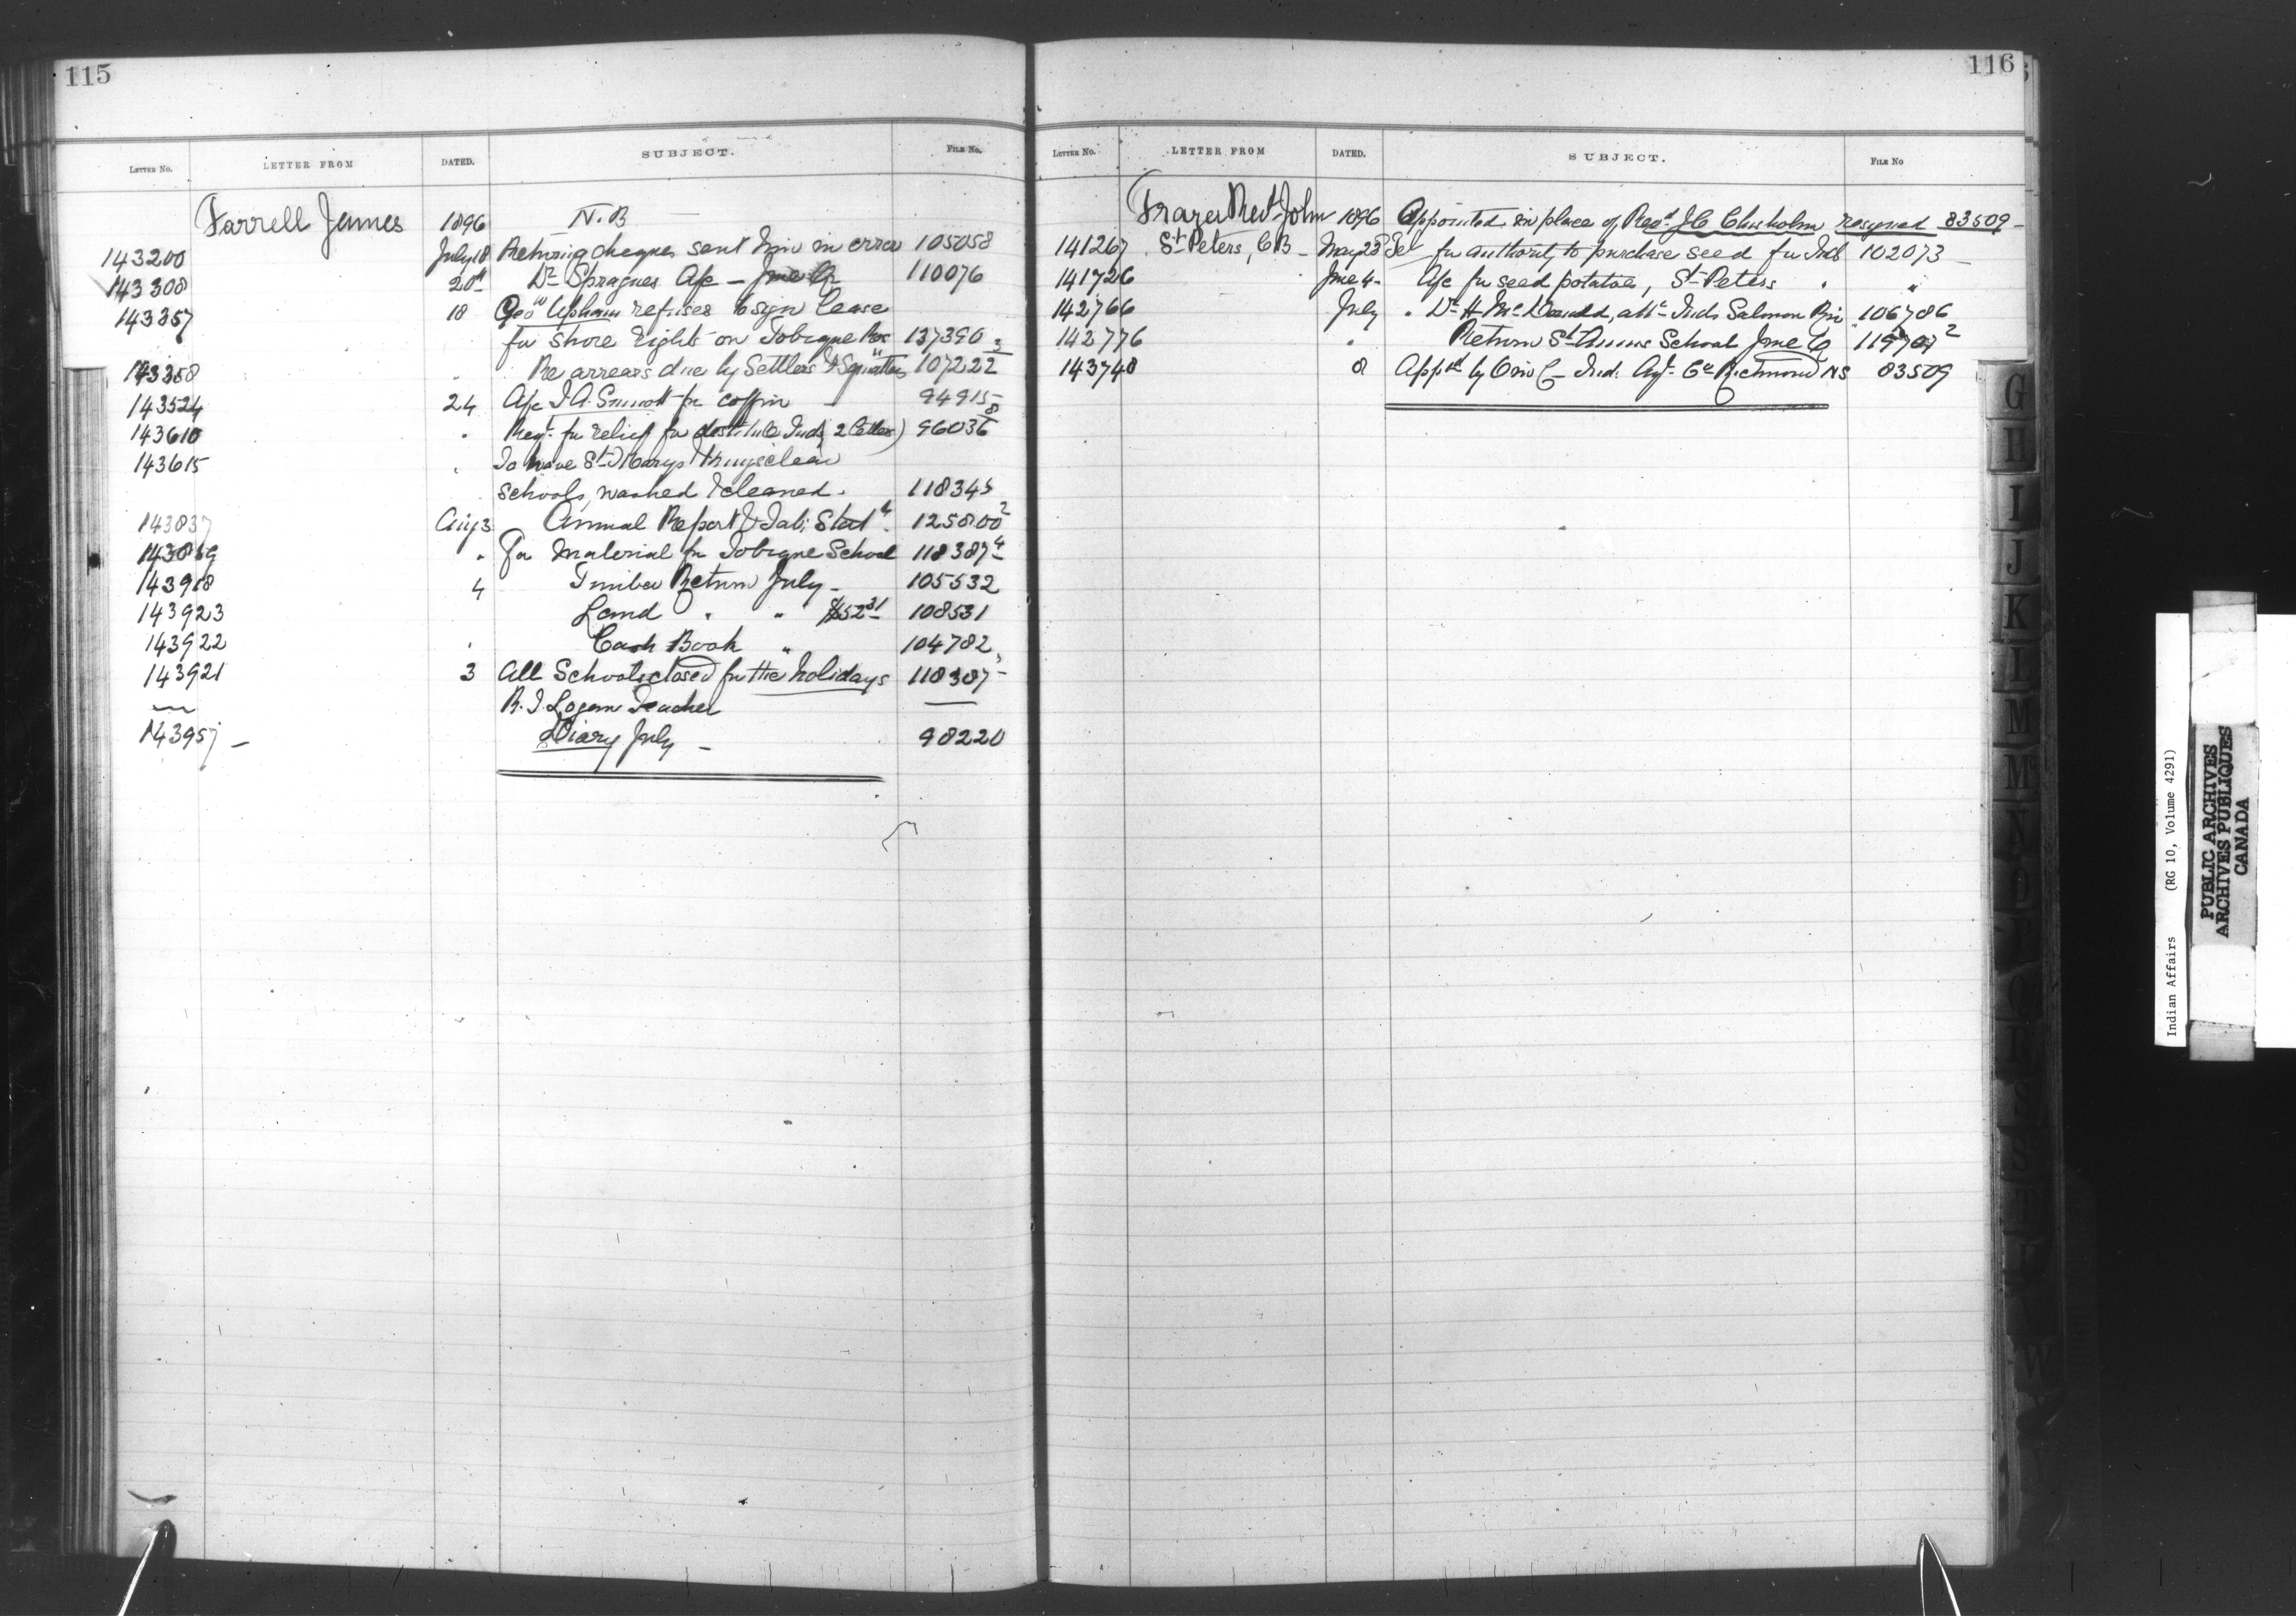 115
LETTER NO. LETTER FROM DATED. SUBJECT. FILE NO.
Farrell James 1896 N.B
143200 July 18 Returning cheques sent him in error 105058
143308 20th Dr Spragues A/c — June Qr 110076
143357 18 Geo Upham refuses to sign lease
for shore rights on Tobique Res 137390 3
143358 " Re arrears due by Settlers & Squatters 107222
143524 24 A/c J.A. for coffin 94915 8
143610 " Reqt for relief for destitute Inds (2 letters) 96036
143615 " To have St Marys & Kingsclear
schools, washed & cleaned. 118345
143837 Aug 3 Annual Report & Tab: Statt. 125800 2
143839 " For material for Tobique School 118387 4
143918 4 Timber Return July — 105532
143923 Land " " $52 31 108531
143922 " Cash Book " 104782
143921 3 All Schools closed for the holidays 118387
— R.J. Logan Teacher —
143957 — Diary July — 98220
116
LETTER NO. LETTER FROM DATED. SUBJECT. FILE NO
Frazer Revd John 1896 Appointed in place of Revd J.C Chisholm resigned 83509 —
141267 St Peters, C B — May 23 Tel for authority to purchase seed for Inds 102073 —
141726 June 4 — A/c for seed potatoes, St Peters " "
142766 July " Dr H McDonald, att. Inds Salmon Riv 106786
142776 " Return St Annes School June Q 119707 2
143748 8 Appd by O in C — Ind. Agt. Co Richmond NS 83509
G
H
I
J
K
L
M
M
N
O
P
Q
R
S
S
T
W
Indian Affairs (RG 10, Volume 4291)
PUBLIC ARCHIVES
ARCHIVES PUBLIQUES
CANADA